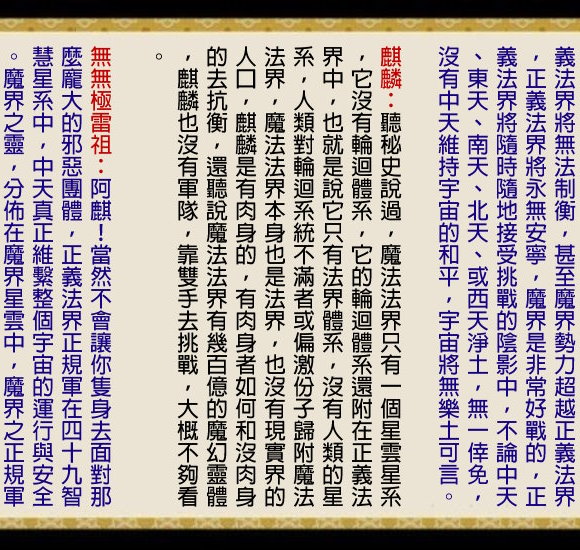 義法界將無法制衡，甚至魔界勢力超越正義法界
，正義法界將永無安寧，魔界是非常好戰的，正
義法界將隨時隨地接受挑戰的陰影中，不論中天
、東天、南天、北天、或西天淨土，無一倖免，
沒有中天維持宇宙的和平，宇宙將無樂土可言。
麒麟：聽秘史說過，魔法法界只有一個星雲星系
，它沒有輪迴體系，它的輪迴體系還附在正義法
界中，也就是說它只有法界體系，沒有人類的星
系，人類對輪迴系統不滿者或偏激份子歸附魔法
法界，魔法法界本身也是法界，也沒有現實界的
人口，麒麟是有肉身的，有肉身者如何和沒肉身
的去抗衡，還聽說魔法法界有幾百億的魔幻靈體
，麒麟也沒有軍隊，靠雙手去挑戰，大概不夠看
。
無無極雷祖：阿麒！當然不會讓你隻身去面對那
麼龐大的邪惡團體，正義法界正規軍在四十九智
慧星系中，中天真正維繫整個宇宙的運行與安全
。魔界之靈，分佈在魔界星雲中，魔界之正規軍